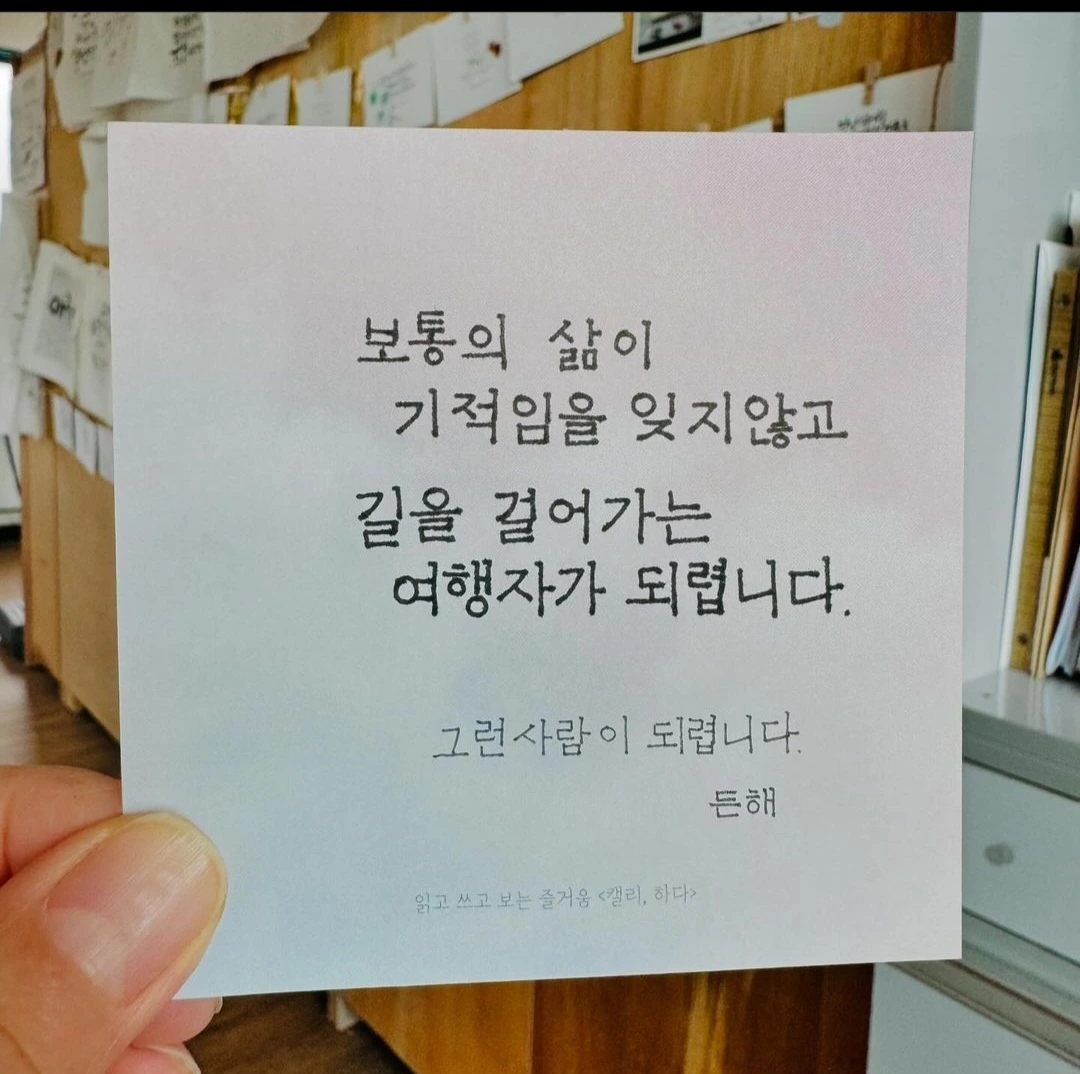 보통의 삶이
기적임을 잊지않고
길을 걸어가는
여행자가 되렵니다.
그런사람이 되렵니다.
든해
읽고 쓰고 보는 즐거움 <캘리, 하다>